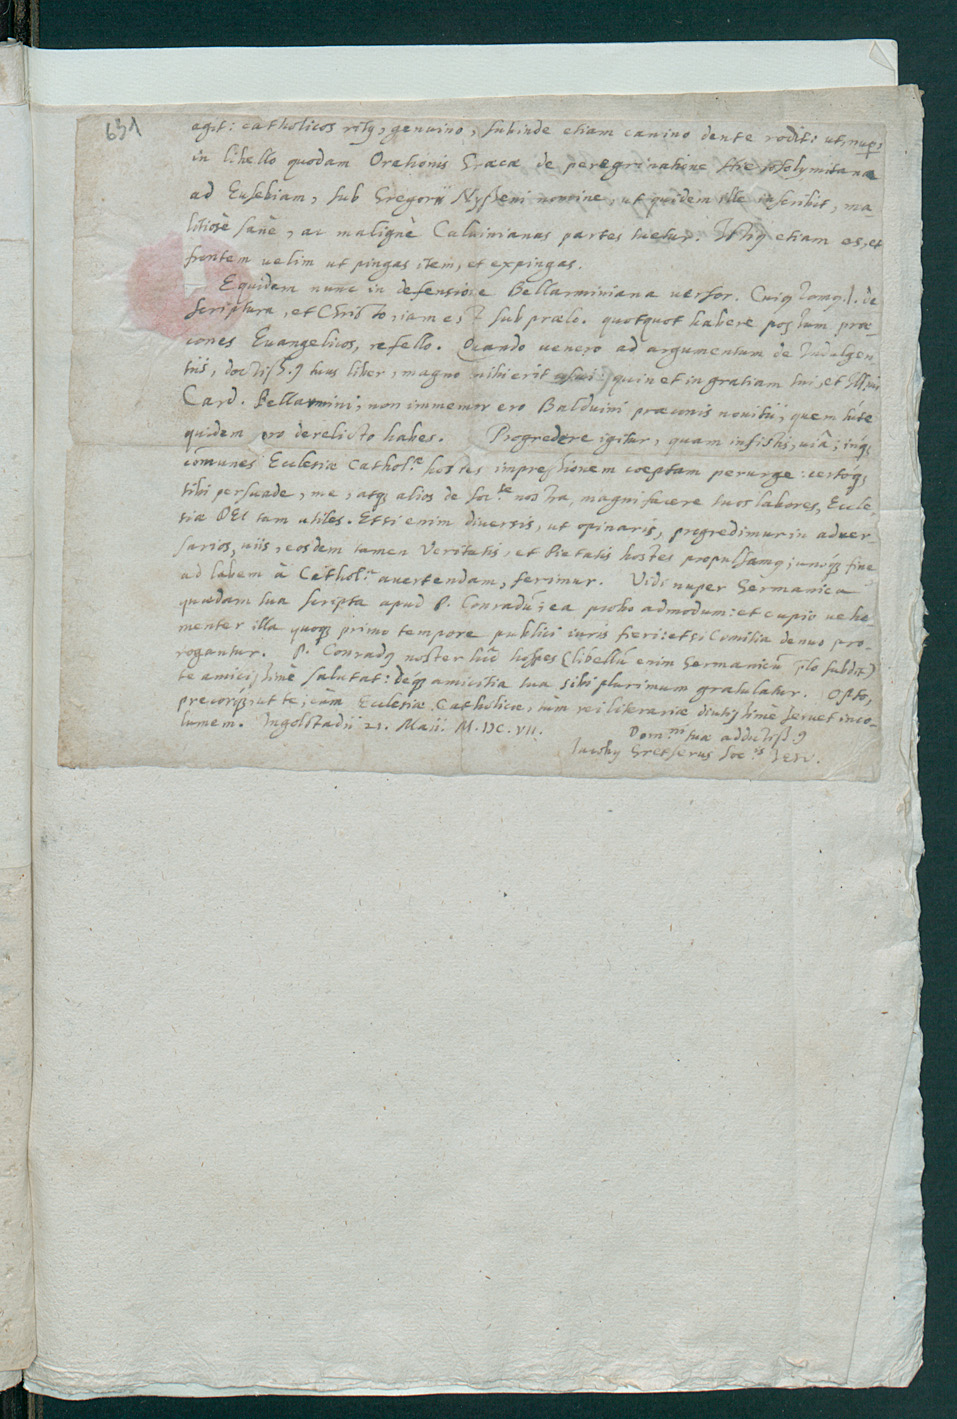 631
agit: catholicos ritq, genuino, subinde etiam canino dente rodit: ut nup
in libello quodam Orationis Græcæ de peregrinatione Hierosolymitana
ad Eusebiam, sub Gregorij Nysseni nomine, ut quidem ille inscribit, ma-
litiosè sanè, ac malignè Caluinianas partes tuetur. etiam es, et
frontem uelim ut pingas item, et expingas.
Equidem nunc in defensione Bellarminiana uersor. 1. de
scriptura, et Christo, iam est sub prælo. quotquot habere possum præ
cones Euangelicos, refello. Quando uenero ad argumentum de Indulgen
tiis, doctiss.9 tuus liber, magno mihi erit usui: quin et in gratiam tui, et Ill.mi
Card. Bellarmini, non immemor ero Balduini præconis nouitii, quem
quidem pro derelicto habes. Progredere igitur, quam insistis, uiâ; inq3
cõmunes Ecclesiæ Cathol.æ hostes impressionem coeptam perurge: certoq3
tibi persuade, me, atq3 alios de Soc.te nostra, magni facere tuos labores, Eccle
siæ DEI tam utiles. Etsi enim diuersis, ut opinaris, progredimur in aduer-
sarios, uiis, eosdem tamen Veritatis, et Pietatis hostes propulsamq; unoq3 fine
ad labem à Cathol.ca auertendam, ferimur. Vidi nuper Germanica
quædam tua scripta apud P. Conradũ; ea probo admodum: et cupio uehe
menter illa quoq3 primo tempore publici iuris fieri: etsi Comitia denuo pro-
rogantur. P. Conradq noster hîc hospes (libellũ enim Germanicũ plo subdit)
te amicissimè salutat: deq3 amicitia tua sibi plurimum gratulatur. Opto,
precorq3, ut te, cùm Ecclesiæ Catholicæ, tùm rei literariæ diutissimè seruet inco-
lumem. Ingolstadii 21. Maii. M.DC.VII.
Dom.ni tuæ addictiss.9
Iacobq Gretserus Soc.is Iesu.